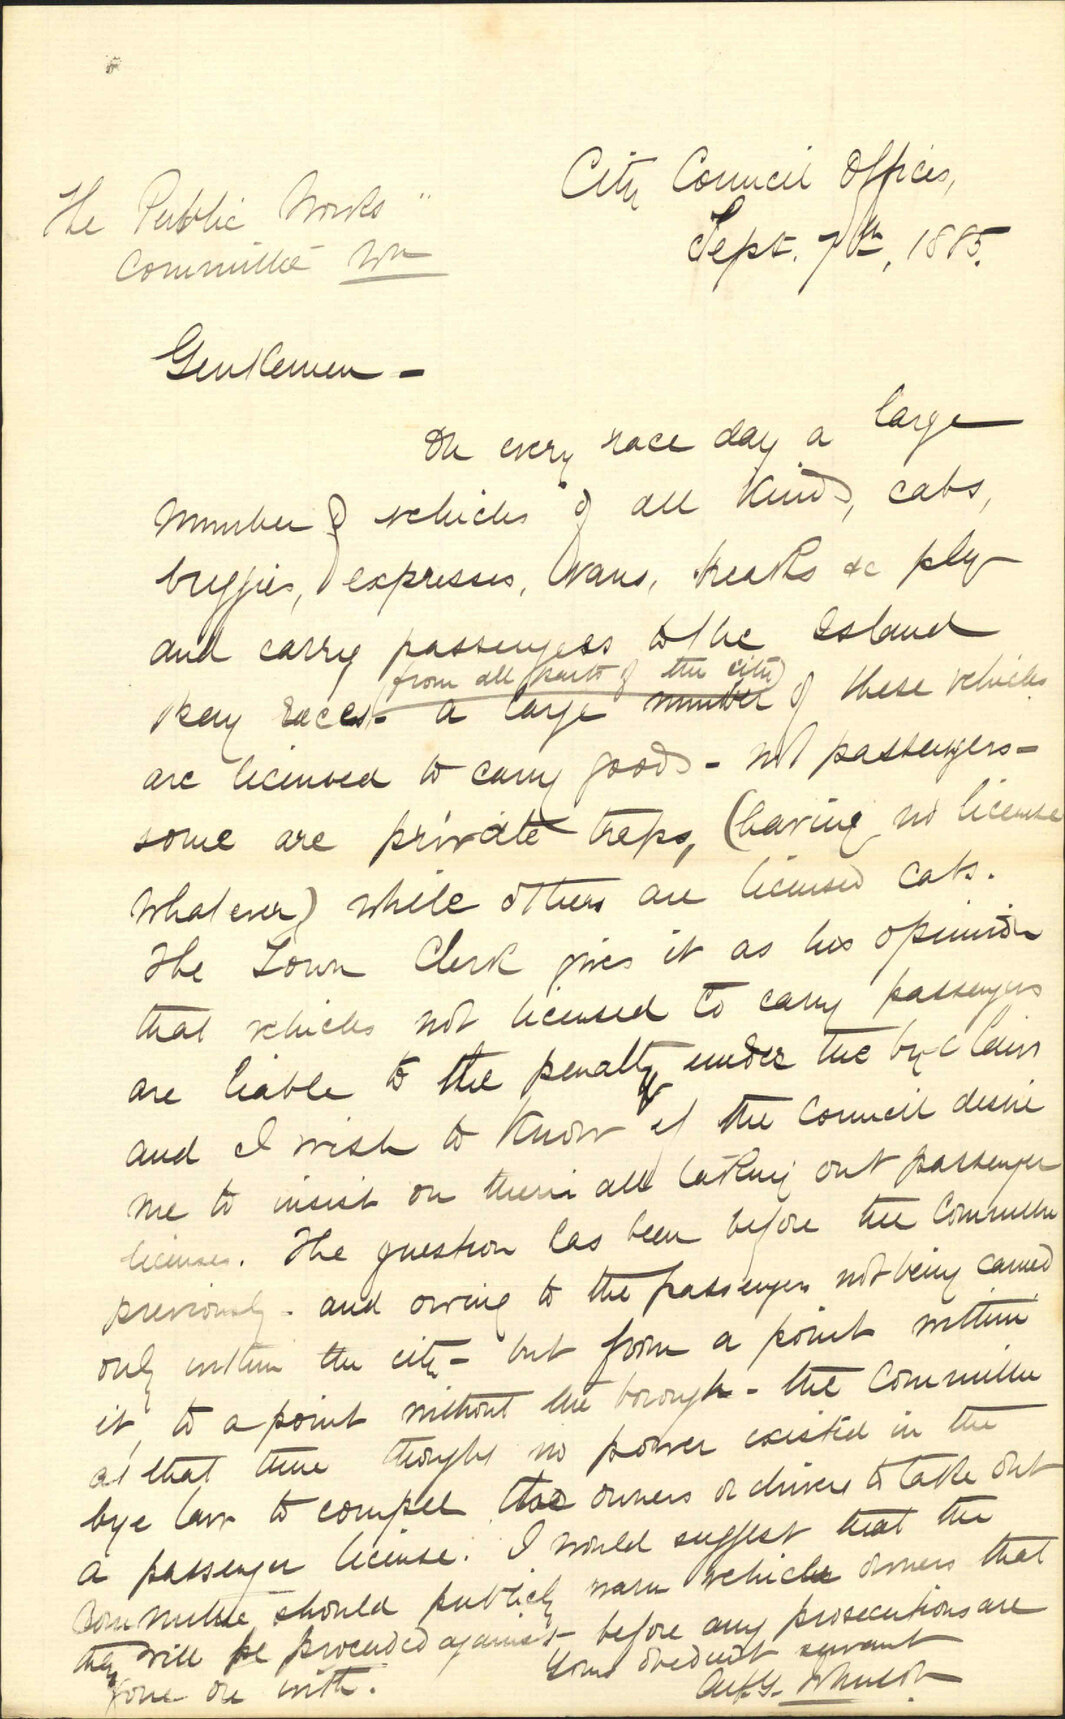 City Council Offices,
Sept. 7th, 1885.
The Public Works
Committee
Gentlemen -
On every race day a large
number of vehicles of all kinds, cabs,
buggies, expresses, vans, breaks &c ply
and carry passengers to the Island
Bay races - from all parts of the city a large number of these vehicles
are licensed to carry goods - not passengers -
some are private traps, (having no license
whatever) while others are licensed cabs.
The Town Clerk gives it as his opinion
that vehicles not licensed to carry passengers
are liable to the penalty under the bye laws
and I wish to know if the Council desire
me to insist on their all taking out passenger
licenses. The question has been before the Committee
previously - and owing to the passengers not being carried
only within the city - but from a point within
it, to a point without the borough - the Committee
at that time thought no power existed in the
bye law to compel the owners or drivers to take out
a passenger license. I would suggest that the
Committee should publicly warn vehicle owners that
they will be proceeded against - before any prosecutions are
gone on with.
Your obedient servant